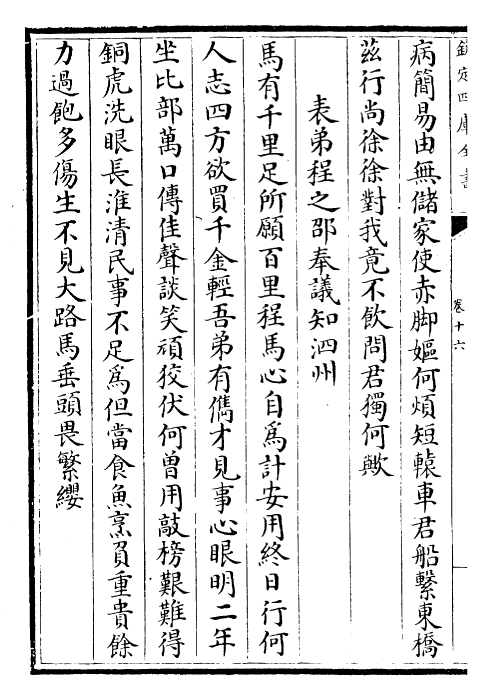 欽定四庫全書
卷十六
病簡易由無儲家使赤脚嫗何煩短轅車君船繫東橋
茲行尚徐徐對我竟不飲問君獨何歟
表弟程之邵奉議知泗州
馬有千里足所願百里程馬心自為計安用終日行何
人志四方欲買千金輕吾弟有儁才見事心眼明二年
坐比部萬口傳佳聲談笑頑狡伏何曽用敲榜艱難得
銅虎洗眼長淮清民事不足為但當食魚烹負重貴餘
力過飽多傷生不見大路馬垂頭畏繁纓